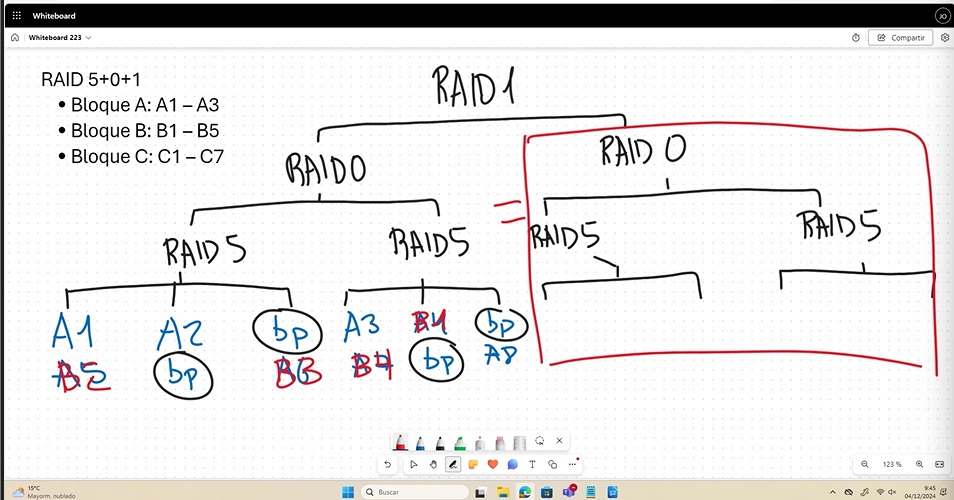 Whiteboard
JO
Whiteboard 223
Compartir
RAID 5+0+1
• Bloque A: A1 – A3
• Bloque B: B1 – B5
• Bloque C: C1 – C7
RAID 1
RAID 0
RAID 0
=
RAID 5
RAID 5
RAID 5
RAID 5
A1 A2 bp A3 bp
bp B3 B4 bp A8
B2
T
123 %
15°C
Mayorm. nublado
Buscar
9:45
04/12/2024